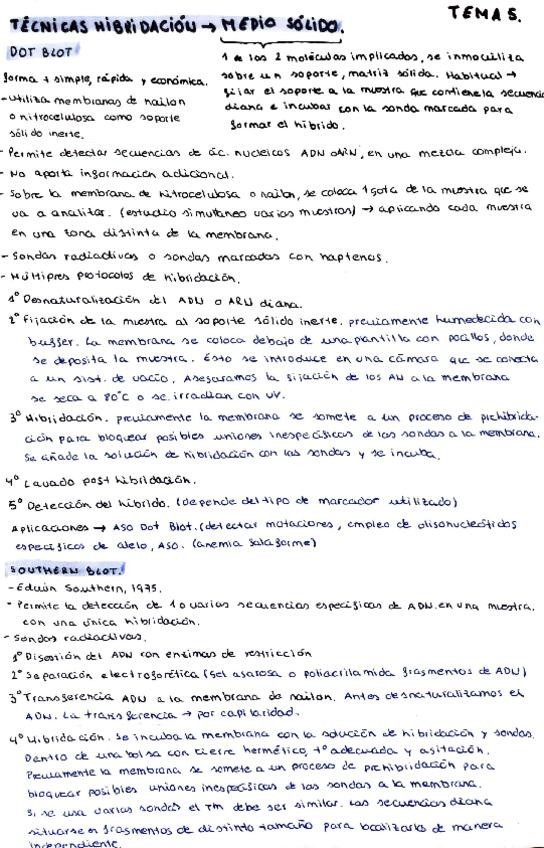 TEMA 5.
TÉCNICAS HIBRIDACIÓN → MEDIO SÓLIDO.
DOT BLOT
1 de las 2 moléculas implicados, se inmoviliza
sobre un soporte, matriz sólida. Habitual →
fijar el soporte a la muestra que contiene la secuencia
diana e incubar con la sonda marcada para
formar el híbrido.
forma + simple, rápida y económica.
- Utiliza membranas de nailon
o nitrocelulosa como soporte
sólido inerte.
- Permite detectar secuencias de ác. nucleicos ADN o ARN, en una mezcla compleja.
- No aporta información adicional.
- Sobre la membrana de nitrocelulosa o nailon, se coloca 1 gota de la muestra que se
va a analizar. (estudio simultaneo varias muestras) → aplicando cada muestra
en una zona distinta de la membrana.
- Sondas radiactivas o sondas marcadas con haptenos.
- Múltiples protocolos de hibridación.
1º Desnaturalización del ADN o ARN diana.
2º Fijación de la muestra al soporte sólido inerte. previamente humedecida con
buffer. La membrana se coloca debajo de una pantilla con pocillos, donde
se deposita la muestra. Esto se introduce en una cámara que se conecta
a un sist. de vacío. Aseguramos la fijación de los AN a la membrana
se seca a 80ºC o se irradian con UV.
3º Hibridación. previamente la membrana se somete a un proceso de prehibrida-
ción para bloquear posibles uniones inespecíficas de las sondas a la membrana.
Se añade la solución de hibridación con las sondas y se incuba.
4º Lavado post hibridación.
5º Detección del híbrido. (depende del tipo de marcador utilizado)
Aplicaciones → ASO Dot Blot. (detectar mutaciones, empleo de oligonucleótidos
específicos de alelo, ASO. (anemia falciforme)
SOUTHERN BLOT.
- Edwin Southern, 1975.
- Permite la detección de 1 o varias secuencias específicas de ADN en una muestra,
con una única hibridación.
- Sondas radiactivas.
1º Digestión del ADN con enzimas de restricción
2º Separación electroforética (gel agarosa o poliacrilamida fragmentos de ADN)
3º Transferencia ADN a la membrana de nailon. Antes desnaturalizamos el
ADN. La transferencia → por capilaridad.
4º Hibridación. Se incuba la membrana con la solución de hibridación y sondas.
Dentro de una bolsa con cierre hermético, tº adecuada y agitación.
Previamente la membrana se somete a un proceso de prehibridación para
bloquear posibles uniones inespecíficas de las sondas a la membrana.
Si se usa varias sondas el Tm debe ser similar. Las secuencias diana
situarse en fragmentos de distinto tamaño para localizarlas de manera
independiente.